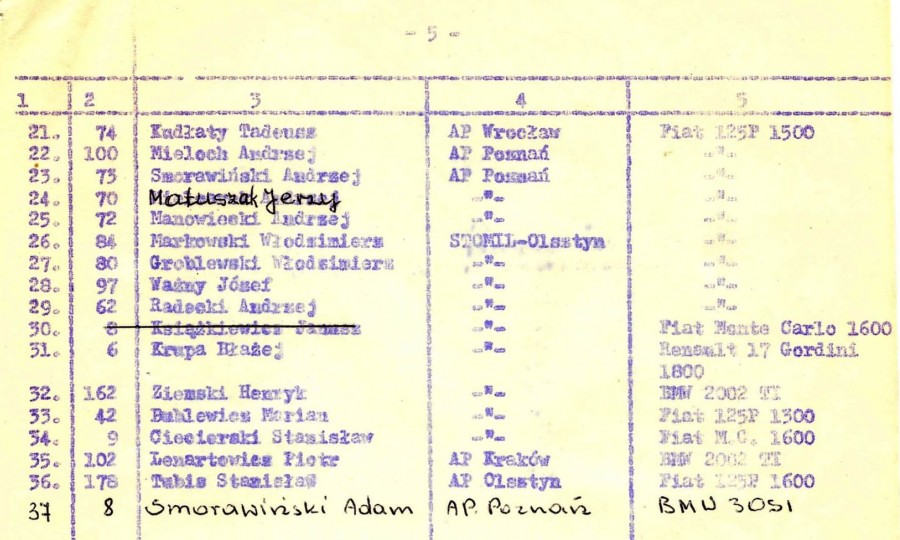 - 5 -
1 2 3 4 5
21. 74 Kudkaty Tadeusz AP Wrocław Fiat 125P 1500
22. 100 Mieloch Andrzej AP Poznań -"-
23. 73 Smorawiński Andrzej AP Poznań -"-
24. 70 Matuszak Jerzy -"- -"-
25. 72 Manowiecki Andrzej -"- -"-
26. 84 Markowski Włodzimierz STOMIL-Olsztyn -"-
27. 80 Groblewski Włodzimierz -"- -"-
28. 97 Ważny Józef -"- -"-
29. 62 Radecki Andrzej -"- -"-
30. 8 Książkiewicz Janusz -"- Fiat Monte Carlo 1600
31. 6 Krupa Błażej -"- Renault 17 Gordini
1800
32. 162 Ziemski Henryk -"- BMW 2002 TI
33. 42 Bublewicz Marian -"- Fiat 125P 1300
34. 9 Ciecierski Stanisław -"- Fiat M.C. 1600
35. 102 Lenartowicz Piotr AP Kraków BMW 2002 TI
36. 178 Tubis Stanisław AP Olsztyn Fiat 125P 1600
37 8 Smorawiński Adam AP. Poznań BMW 30SI